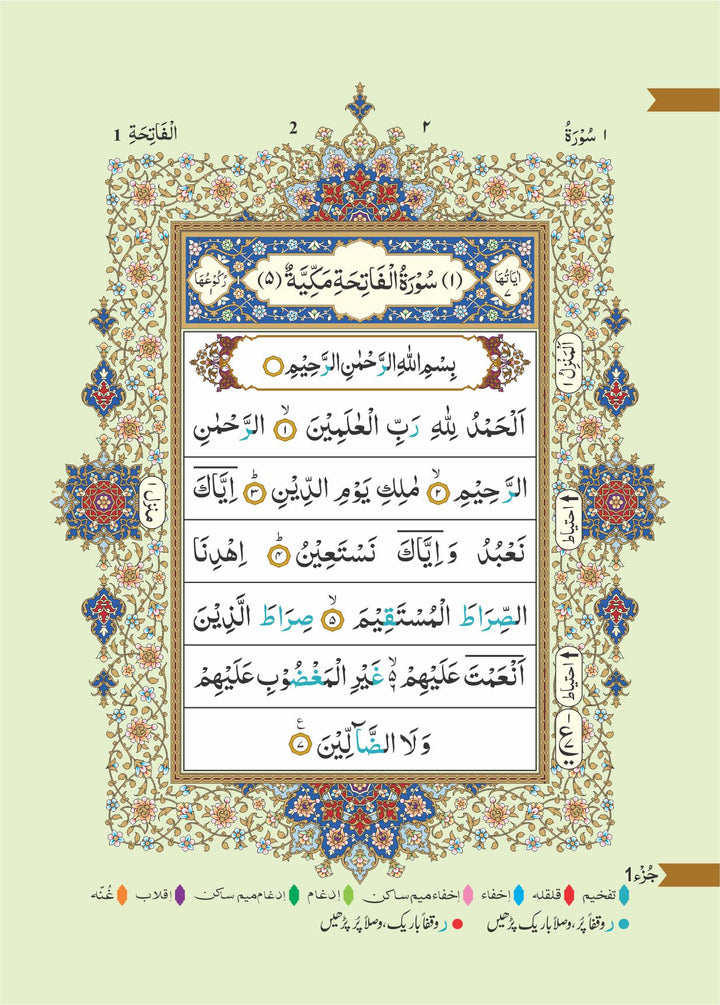 ١ سُوْرَةُ
٢
2
اَلْفَاتِحَةِ 1
اٰيَاتُهَا ٧
(١) سُوْرَةُ الْفَاتِحَةِ مَكِّيَّةٌ (٥)
رُكُوْعُهَا ١
بِسْمِ اللّٰهِ الرَّحْمٰنِ الرَّحِيْمِ
اَلْحَمْدُ لِلّٰهِ رَبِّ الْعٰلَمِيْنَ ۙ ١ الرَّحْمٰنِ
الرَّحِيْمِ ۙ ٢ مٰلِكِ يَوْمِ الدِّيْنِ ؕ ٣ اِيَّاكَ
نَعْبُدُ وَاِيَّاكَ نَسْتَعِيْنُ ؕ ٤ اِهْدِنَا
الصِّرَاطَ الْمُسْتَقِيْمَ ۙ ٥ صِرَاطَ الَّذِيْنَ
اَنْعَمْتَ عَلَيْهِمْ ۙ۬ ٦ غَيْرِ الْمَغْضُوْبِ عَلَيْهِمْ
وَلَا الضَّآلِّيْنَ ࣖ ٧
اَلْمَنْزِل ١
منزل ١
احتیاط
احتیاط
جُزْء 1
تفخیم قلقله إخفاء إخفاء میم ساکن إدغام إدغام میم ساکن إقلاب غُنّه
ر وقفاً پُر، وصلاً باریک پڑھیں ر وقفاً باریک، وصلاً پُر پڑھیں